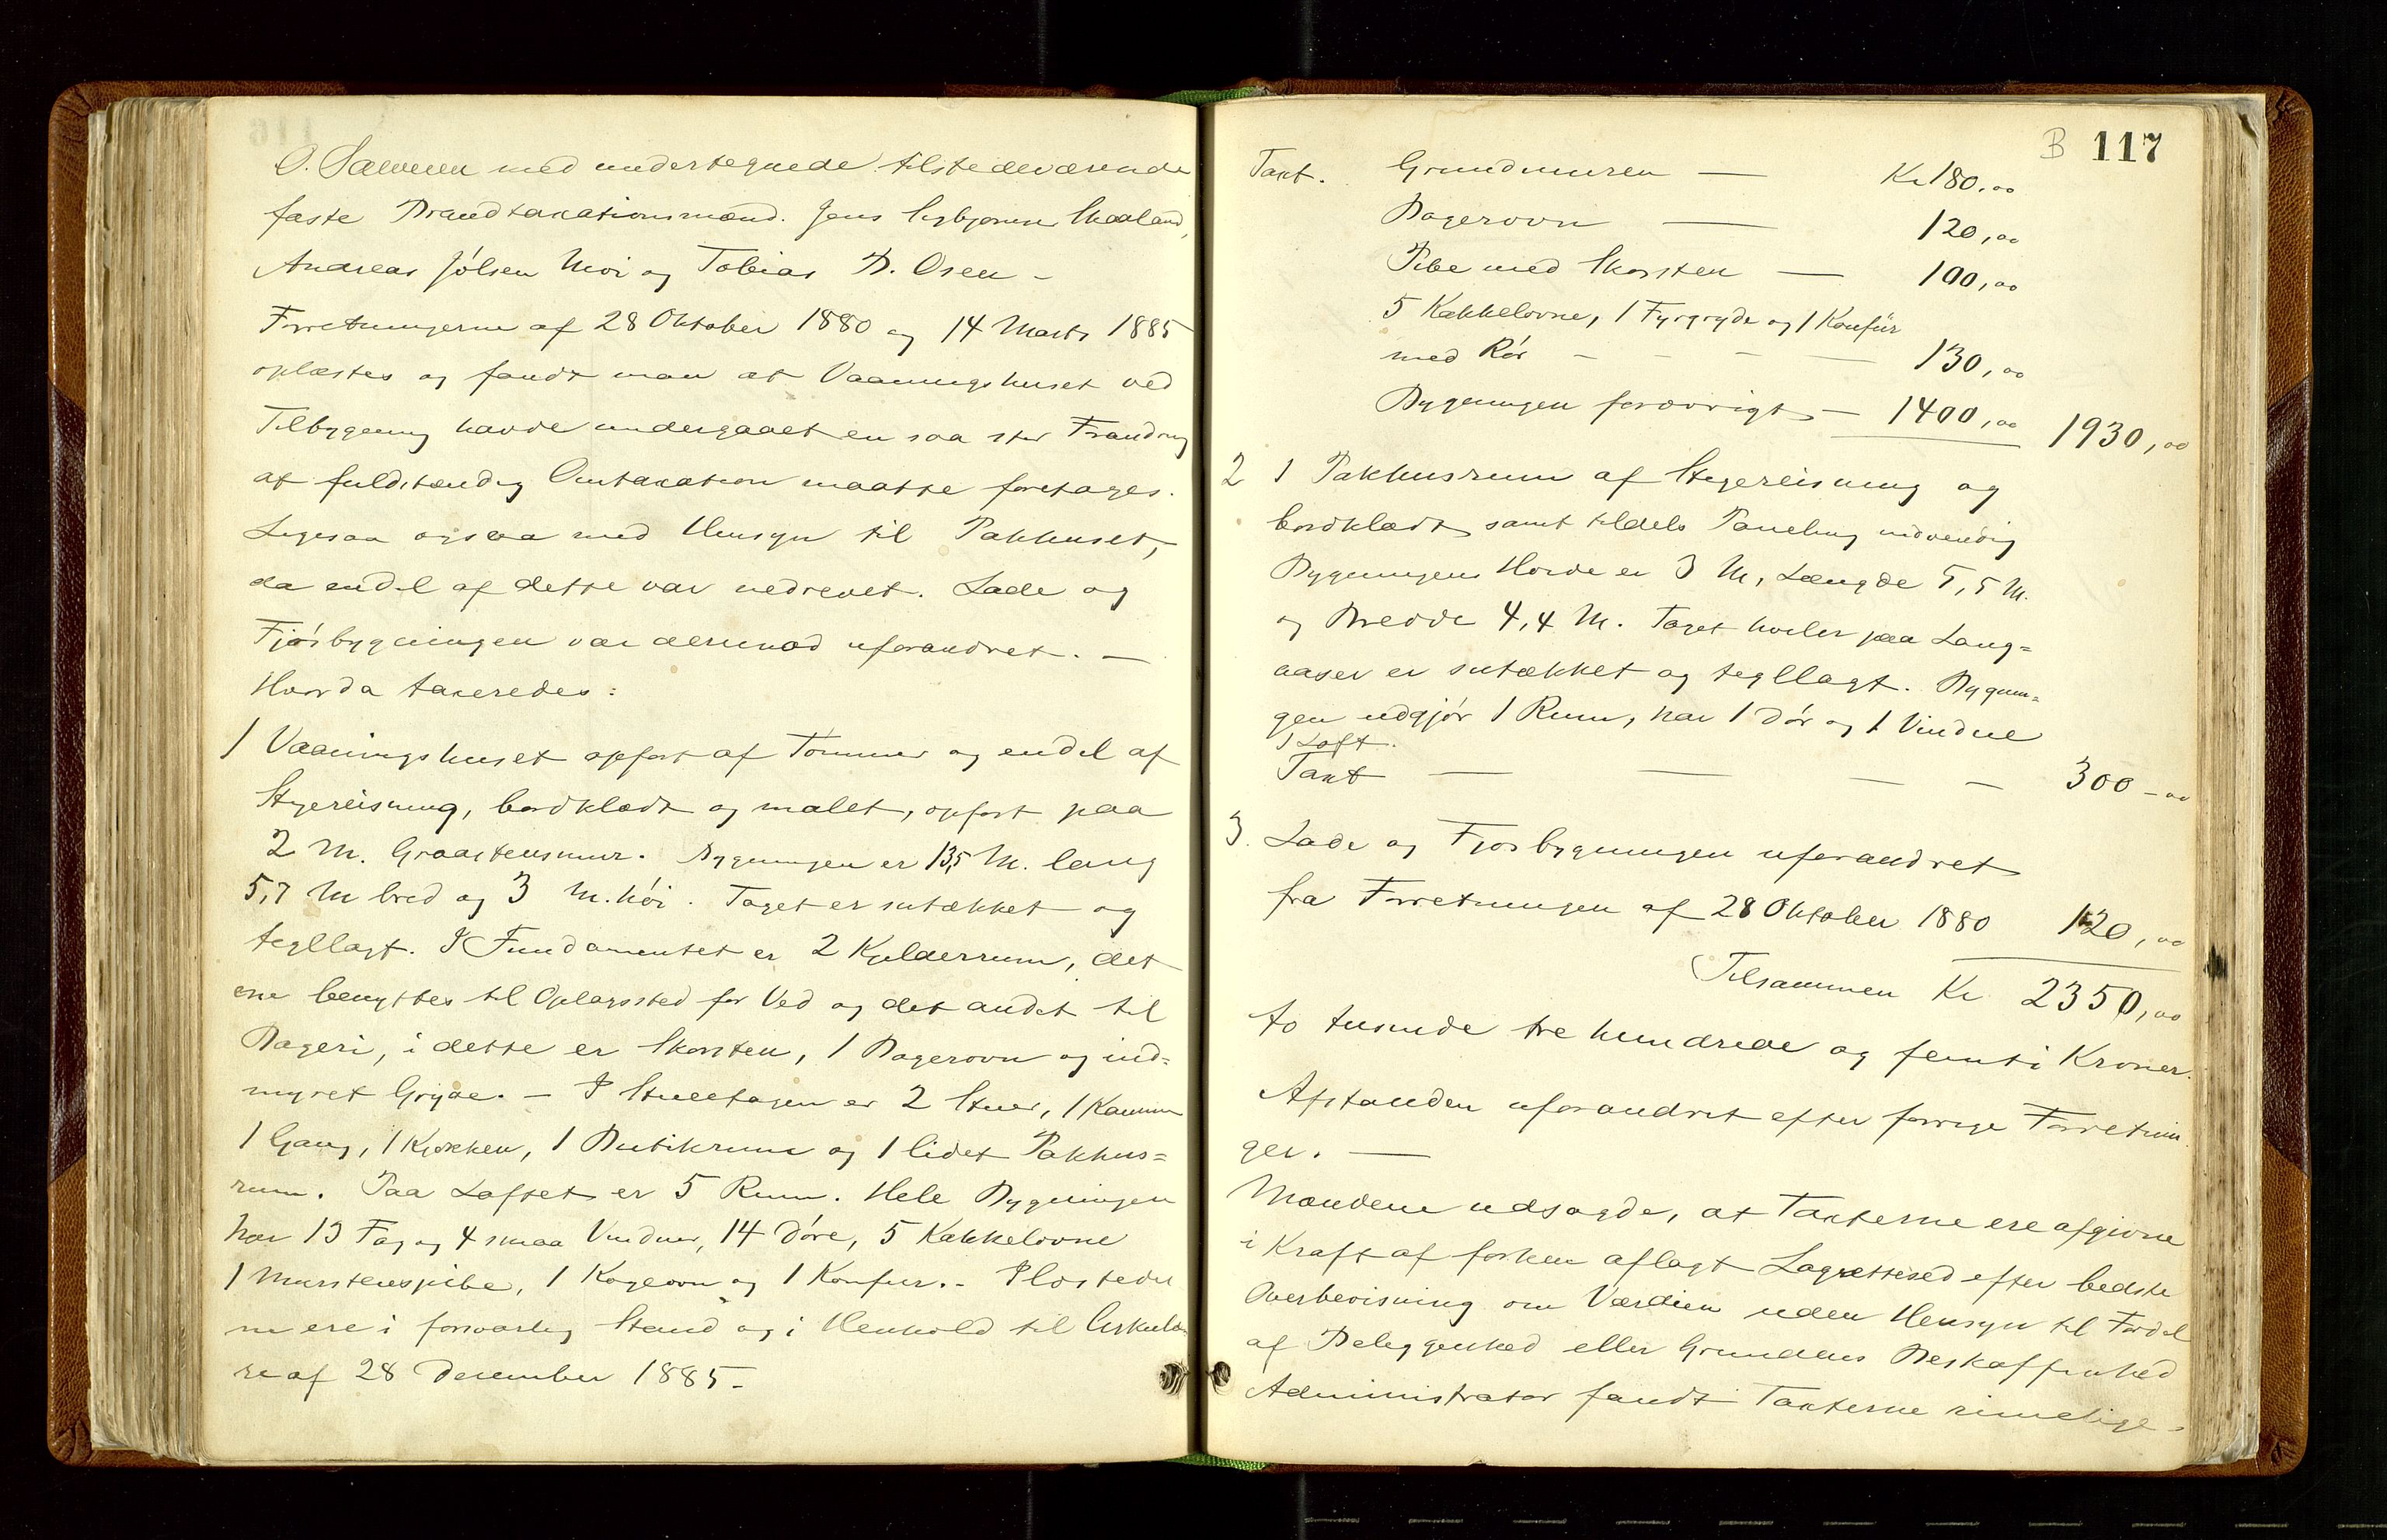 O. Salvesen med undertegnede tilstedeværende
faste Brandtaxationsmænd. Jens Sigbjørnsen Skaaland,
Andreas Jólsen Moi og Tobias B. Osen –
Forretningerne af 28 Oktober 1880 og 14 Marts 1885
oplæstes og fandt man at Vaaningshuset ved
Tilbygning havde undergaaet en saa stor Forandring
at fuldstændig Omtaxation maatte foretages.
Ligesaa ogsaa med Hensyn til Pakhuset,
da endel af dette var nedrevet. Lade og
Fjósbygningen var derimod uforandret. –
Hvorda taxeredes:
1 Vaaningshuset opført af Tømmer og endel af
Stigereisning, bordklædt og malet, opført paa
2 M. Graastensmur. Bygningen er 13,5 M. lang
5,7 M bred og 3 M. hói. Taget er sutækket og
tegllagt. I Fundamentet er 2 Kjelderrum, det
ene benyttes til Oplagssted for Ved og det andet til
Bageri, i dette er Skorsten, 1 Bagerovn og ind=
myret Gryde. – I Stueetagen er 2 Stuer, 1 Kammer
1 Gang, 1 Kjøkken, 1 Butikrum og 1 lidet Pakhus=
rum. Paa Loftet er 5 Rum. Hele Bygningen
har 13 Fag og 4 smaa Vinduer, 14 Dóre, 5 Kakkelovne
1 Murstenspibe, 1 Bagerovn og 1 Komfur. – Ildsteder
ne ere i forsvarlig Stand og i Henhold til Cirkulæ=
re af 28 December 1885 –
B 117
Taxt. Grundmuren — Kr 180,00
Bagerovn — 120,00
Pibe med Skorsten — 100,00
5 Kakkelovne, 1 Fyrgryde og 1 Komfür
med Rór – – – — 130,00
Bygningen forøvrigt — 1400,00 1930,00
2 1 Pakhusrum af Stigereisning og
bordklædt samt tildels Paneling indvendig
Bygningens Høide er 3 M, Længde 5,5 M.
og Bredde 4,4 M. Taget hviler paa Lang=
aaser er sutækket og tegllagt. Bygnin=
gen udgjór 1 Rum, har 1 Dór og 1 Vindue
1 Loft.
Taxt — — — — 300 – 00
3. Lade og Fjøsbygningen uforandret
fra Forretningen af 28 Oktober 1880 120,00
Tilsammen Kr 2350,00
to tusinde tre hundrede og femti Kroner.
Afstanden uforandret efter forrige Forretnin
ger. —
Mændene udsagde, at Taxterne ere afgivne
i Kraft af forhen aflagt Lagrettesed efter bedste
Overbevisning om Værdien uden Hensyn til Fordel
af Beliggenhed eller Grundens Beskaffenhed
Administrator fandt Taxterne rimelige –